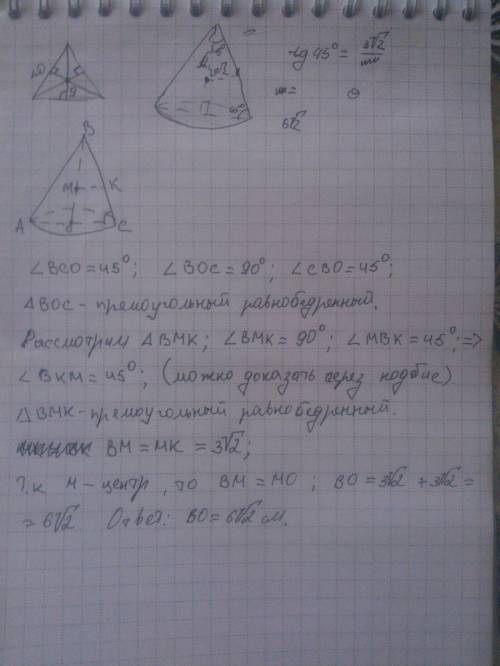 tg 45° = 3√2
m =
6√2
B
M K
A C
∠BCO = 45°; ∠BOC = 90°; ∠CBO = 45°;
△BOC - прямоугольный равнобедренный.
Рассмотрим △BMK; ∠BMK = 90°; ∠MBK = 45°; =>
∠BKM = 45°; (можно доказать через подобие).
△BMK - прямоугольный равнобедренный.
BM = MK = 3√2;
Т.к M - центр, то BM = MO; BO = 3√2 + 3√2 =
= 6√2 Ответ: BO = 6√2 см.